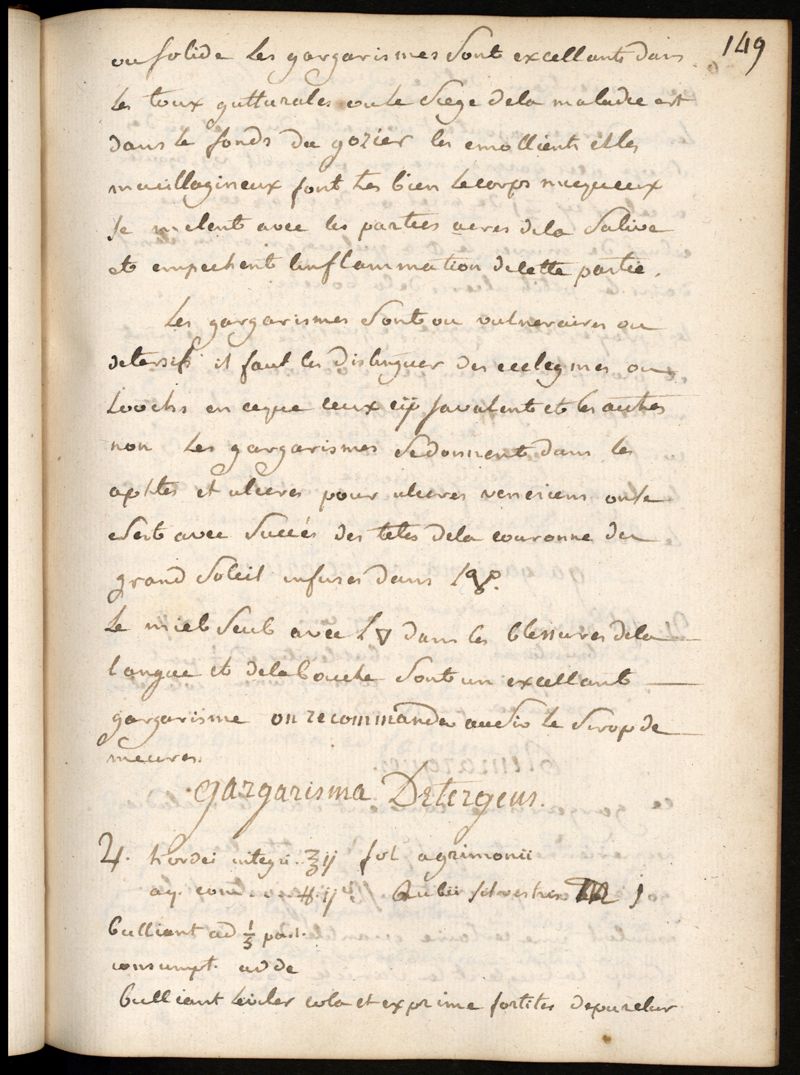 149
ou solide Les gargarismes sont excellents dans
les toux gutturales ou le siege dela maladie est
dans le fonds du gozier les emollients et les
mucillagineux font tres bien le corps muqueux
se melent avec les parties acres dela salive
et empechent linflammation decette partie.
Les gargarismes sont ou vulneraires ou
detersifs il faut les distinguer des eclegmes ou
Loochs en ceque ceux cÿ savalent et les autres
non Les gargarismes se donnent dans les
aphtes et ulceres pour ulceres veneriens on se
sert avec succés des tetes dela couronne du
grand soleil infuses dans
Le miel seul avec L🜄 dans les blessures dela
langue et delabouche sont un excellant
gargarisme on recommande aussi le sirop de
meures.
gargarisma Detergens.
♃. hordei integri ʒij fol agrimonii
aq. com ℔ ij Rubi silvestris M j
bulliant ad 1/3 part.
consumpt. adde
bulliant leviter cola et exprime fortiter depuretur